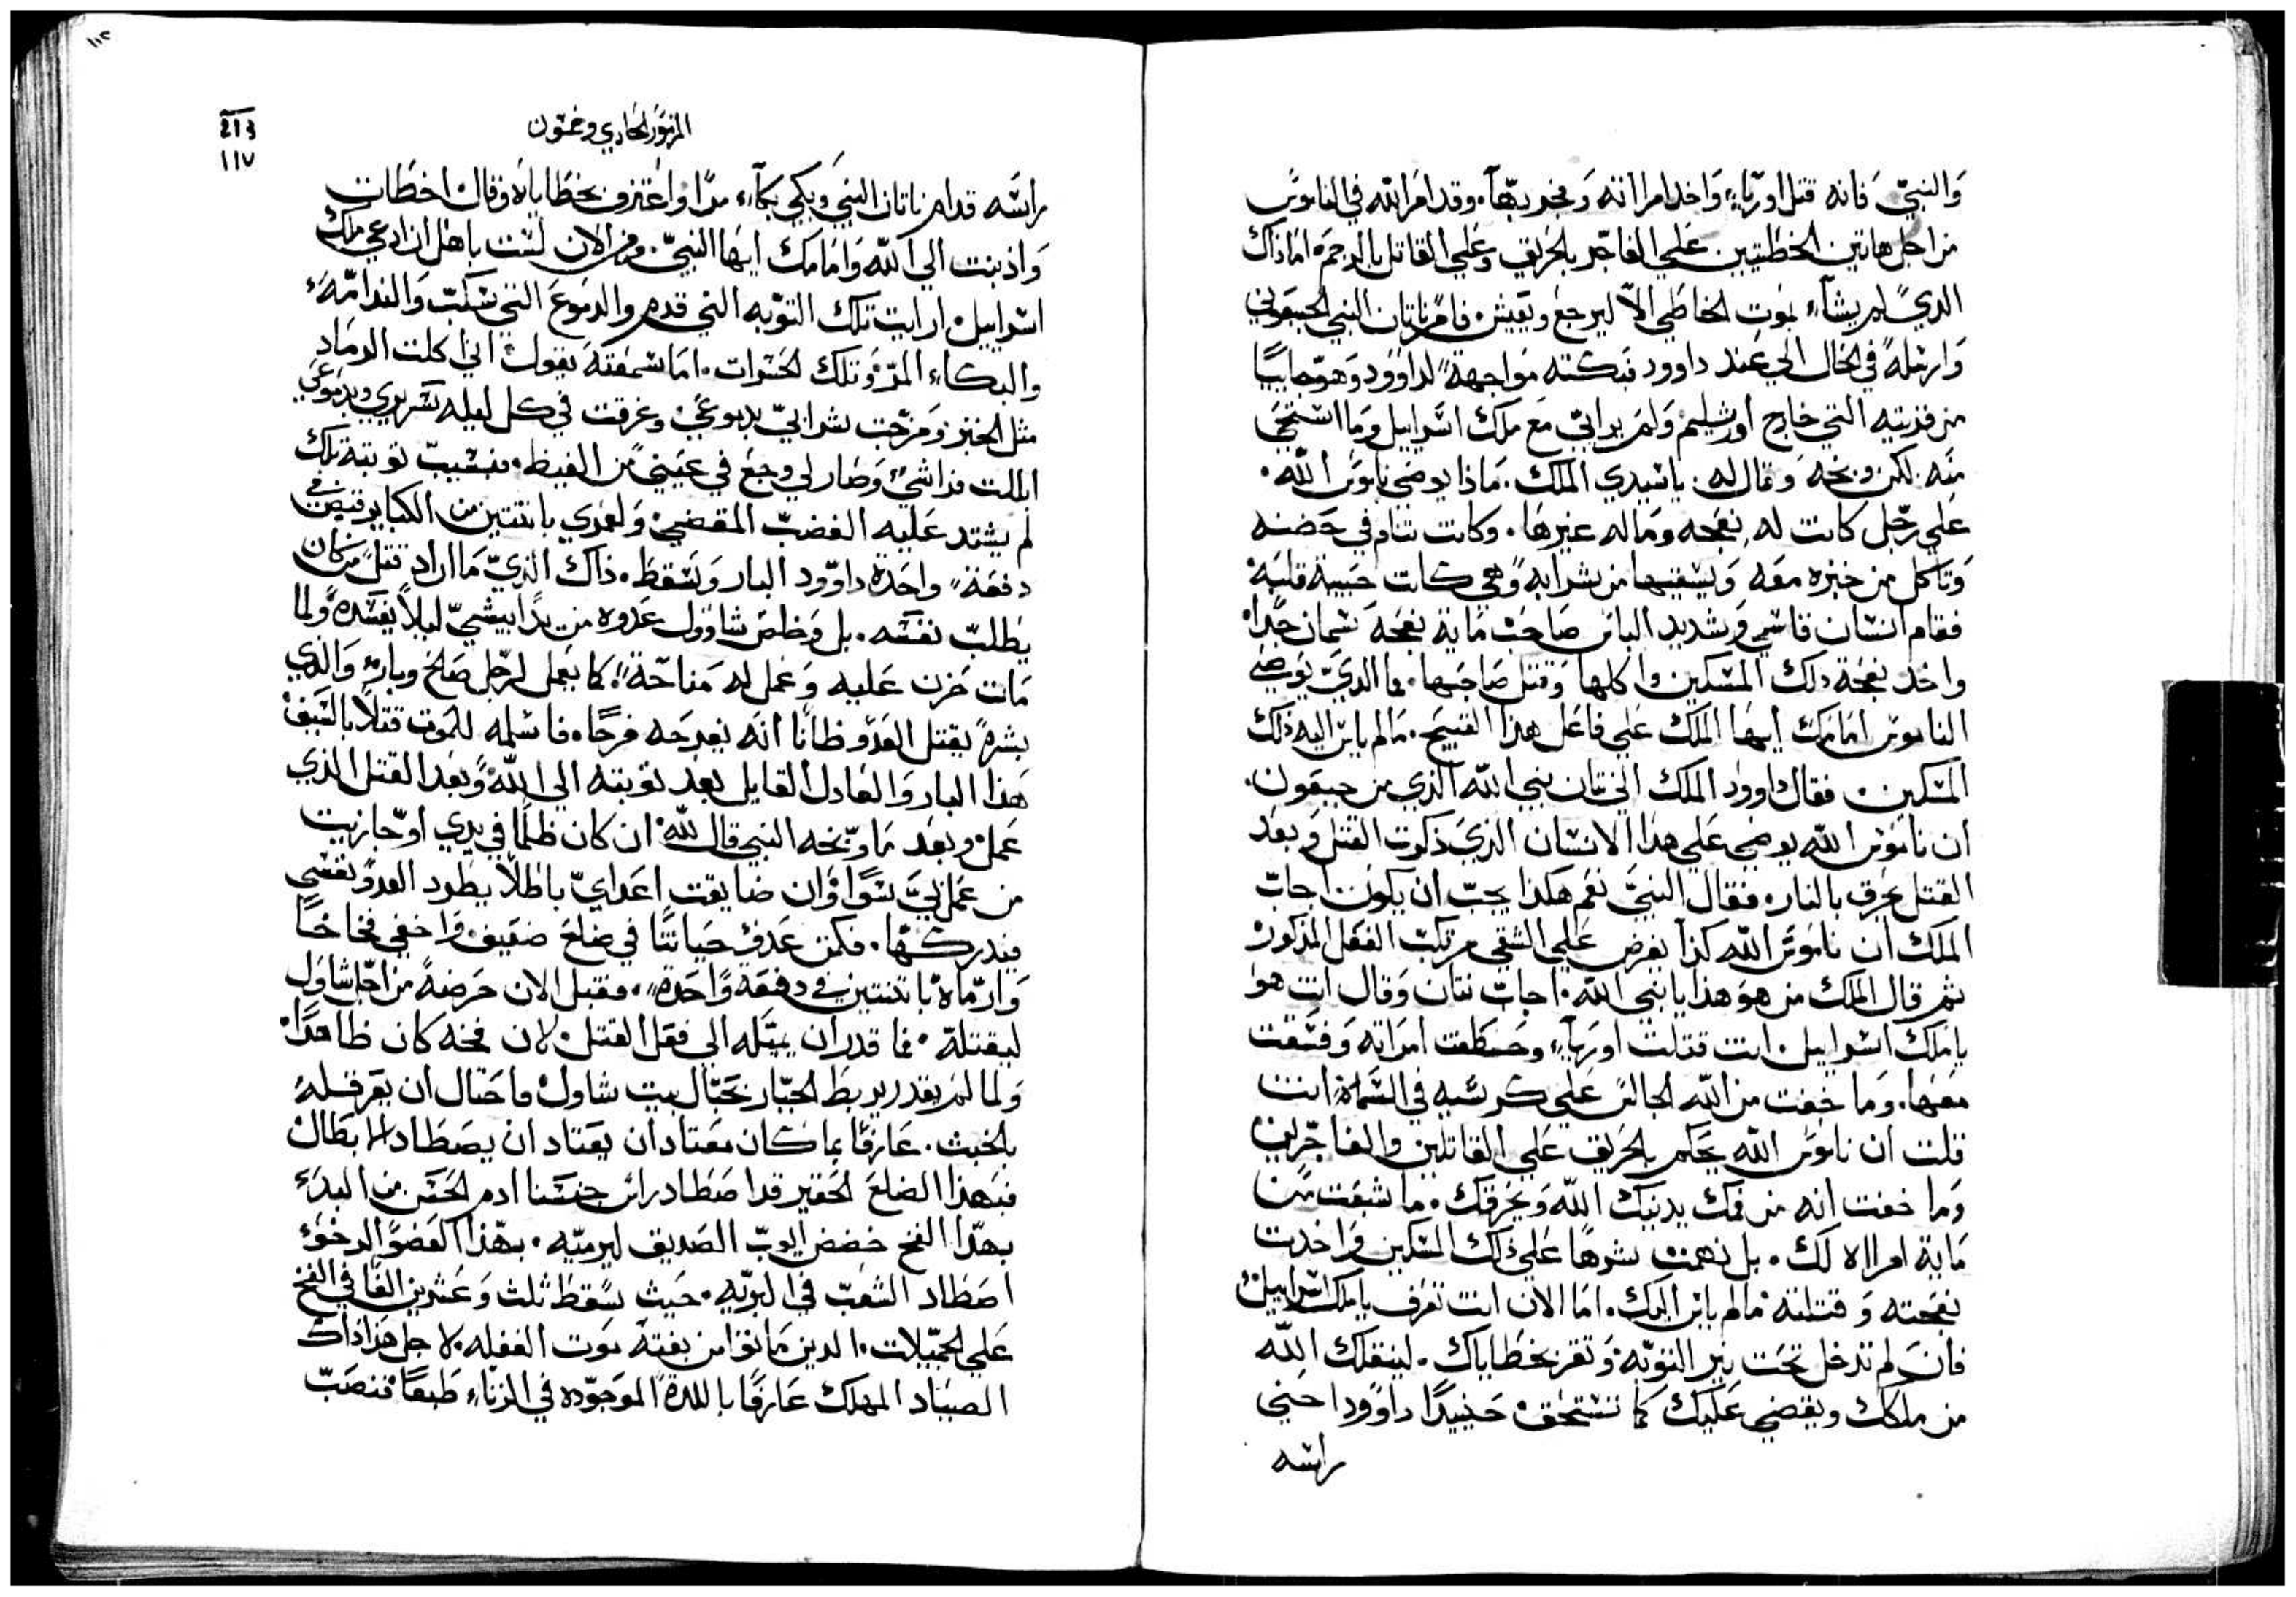 والنبيّ فانه قتل اورّياء واخد امراته وفجر بها. وقد امر الله في الناموس
من اجل هاتين الخطيتين علي الفاجر بالحريق وعلي القاتل بالرجم. اما ذاك
الدي لم يشاء موت الخاطي الا ليرجع ويعيش. فامر ناتان النبي الجبعوني
وارسله في الحال الي عند داوود فبكته مواجهة لداوود وهو جابيا
من قريته التي خارج اورشليم ولم يراي مع ملك اسراييل وما استحي
منه لكن وبخه وقال له. يا سيدي الملك. ماذا يوضي ناموس الله.
علي رجل كانت له نعجه وماله غيرها. وكانت تنام في حضنه
وتاكل من خبزه معه ويسقيها من شرابه وهي كانت حبيبة قلبه
فقام انسان قاسي وشديد الباس صاحب ماية نعجه سمان جدا
واخد نعجة دلك المسكين واكلها وقتل صاحبها. فما الدي يوضي
الناموس امامك ايها الملك علي فاعل هذا القبيح. مالم ياس اليه ذلك
المسكين. فقال داوود الملك الي نتان نبي الله الذي من جبعون.
ان ناموس الله يوضي علي هذا الانسان الذي ذكرت القتل وبعد
القتل يحرق بالنار. فقال النبي نعم هكذا يجب ان يكون اجاب
الملك ان ناموس الله كذا يفرض علي الشقي مرتكب الفعل المذكور
ثم قال الملك من هو هذا يا نبي الله. اجاب نتان وقال انت هو
يا ملك اسراييل. انت قتلت اورياء وخطفت امراته وفسقت
معها. وما خفت من الله الجالس علي كرسيه في السماء انت
قلت ان ناموس الله يحكم بالحريق علي القاتلين والفاجرين
وما خفت انه من فمك يدينك الله ويحرقك. ما شبعت من
ماية امراه لك. بل نهمت شرها علي ذلك المسكين واخدت
نعجته وقتلته مالم ياس اليك. اما الان انت تعرف يا ملك اسراييل
فان لم تدخل تحت نير التوبه وتقر بخطاياك. لينقلك الله
من ملكك ويقضي عليك كما تستحق. حينيدا داوود احني
راسه
٢١٣
١١٧
المزمور الحادي وخمسون
راسه قدام ناتان النبي وبكي بكاء مرا واعترف بخطاياه وقال اخطات
واذنبت الي الله وامامك ايها النبي. ومن الان لست باهل ان ادعي ملك
اسراييل. ارايت تلك التوبه التي قدم والدموع التي سكب والندامه
والبكاء المر وتلك الحسرات. اما سمعته يقول اني اكلت الرماد
مثل الخبز ومزجت شرابي بدموعي وغرقت في كل ليله سريري وبدموعي
ابللت فراشي وصار لي وجع في عيني من الغيظ. فبسبب توبته تلك
لم يشتد عليه الغضب المقضي ولعمري باثنتين من الكباير قنص في
دفعة واحدة داوود البار وسقط. ذاك الذي ما اراد قتل من كان
يطلب نفسه. بل وخلص شاوول عدوه من يد ابيشي ليلا يفسده ولما
مات حزن عليه وعمل له مناحة. كما يعمل لرجل صالح وبار والدي
بشره بقتل العدو ظانا انه يفرحه فرحا. فاسلمه للموت قتلا بالسيف
هذا البار والعادل القايل بعد توبته الي الله وبعد القتل الذي
عمل وبعد ما وبخه النبي قال لله. ان كان ظلما في يدي او جازيت
من عمل لي سوا وان ضايقت اعداي باطلا يطرد العدو نفسي
فيدركها. فكمن عدو حياتنا في ضلع ضعيف واخفي فخا خا
وارماه باثنتين في دفعة واحدة. فقبل الان حرضه من اجل شاول
ليقتله. فما قدر ان يميله الي فعل القتل. لان فخه كان ظاهرا
ولما لم يقدر يربط الجبار بحبال بيت شاول. فاحتال ان يعرقله
بالخبث. عارفا بما كان معتادا ان يعتاد ان يصطاد الابطال
فبهذا الضلع الحقير قد اصطاد راس جنسنا ادم الحسن من البدء
بهذا الفخ خضخض ايوب الصديق ليرميه. بهذا العضو الرخو
اصطاد الشعب في البريه. حيث سقط ثلث وعشرين الفا في الفخ
علي الجميلات. الدين ماتوا من بغتة موت الغفله. لاجل هذا ذاك
الصياد المهلك عارفا باللدة الموجوده في الزناء طبعا فنصب